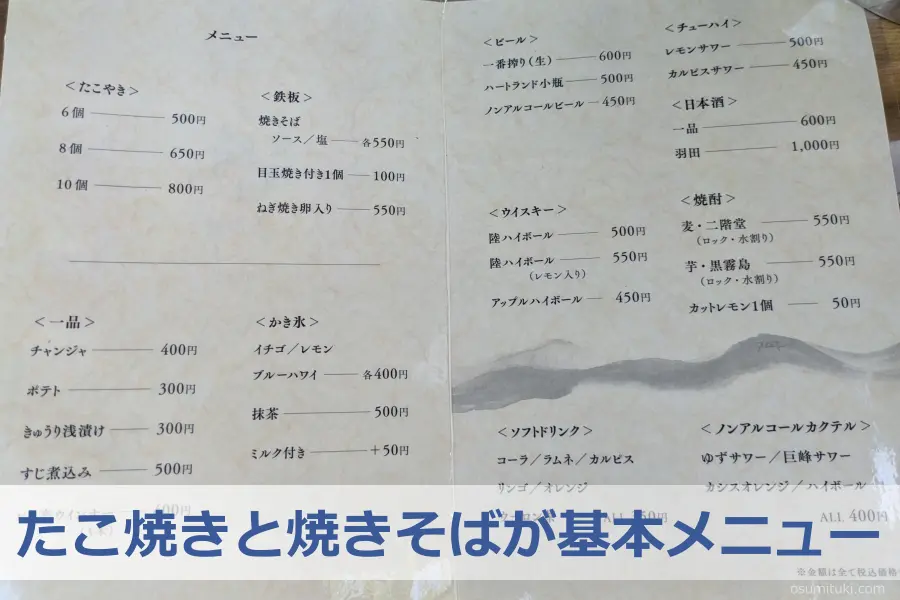 メニュー
<たこやき>
6個 500円
8個 650円
10個 800円
<鉄板>
焼きそば
ソース/塩 各550円
目玉焼き付き1個 100円
ねぎ焼き卵入り 550円
<一品>
チャンジャ 400円
ポテト 300円
きゅうり浅漬け 300円
すじ煮込み 500円
<かき氷>
イチゴ/レモン
ブルーハワイ 各400円
抹茶 500円
ミルク付き +50円
<ビール>
一番搾り(生) 600円
ハートランド小瓶 500円
ノンアルコールビール 450円
<チューハイ>
レモンサワー 500円
カルピスサワー 450円
<日本酒>
一品 600円
羽田 1,000円
<ウイスキー>
陸ハイボール 500円
陸ハイボール 550円
(レモン入り)
アップルハイボール 450円
<焼酎>
麦・二階堂 550円
(ロック・水割り)
芋・黒霧島 550円
(ロック・水割り)
カットレモン1個 50円
<ソフトドリンク>
コーラ/ラムネ/カルピス
リンゴ/オレンジ
<ノンアルコールカクテル>
ゆずサワー/巨峰サワー
カシスオレンジ/ハイボール
ALL 400円
たこ焼きと焼きそばが基本メニュー
※金額は全て税込価格
osumituki.com